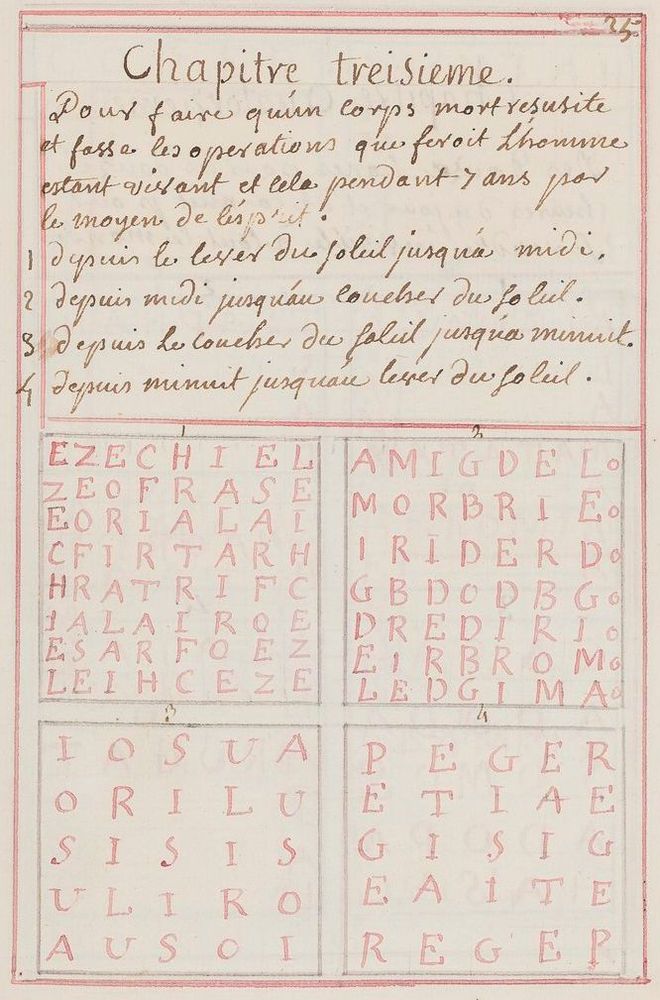 25
Chapitre treisieme.
Pour faire qu'un corps mort resusite
et fasse les operations que feroit L'homme
estant vivant et cela pendant 7 ans par
le moyen de l'ésprit.
1 depuis le lever du soleil jusqu'a midi.
2 depuis midi jusqu'au coucher du soleil.
3 depuis le coucher du soleil jusqu'a minuit.
4 depuis minuit jusqu'au lever du soleil.
1
EZECHIEL
ZEOFRASE
EORIALAI
CFIRTARH
HRATRIFC
IALAIROE
ESARFOEZ
LEIHCEZE
2
AMIGDELo
MORBRIEo
IRIDERDo
GBDODBGo
DREDIRIo
EIRBROMo
LEDGIMAo
3
IOSUA
ORILU
SISIS
ULIRO
AUSOI
4
PEGER
ETIAE
GISIG
EAITE
REGEP